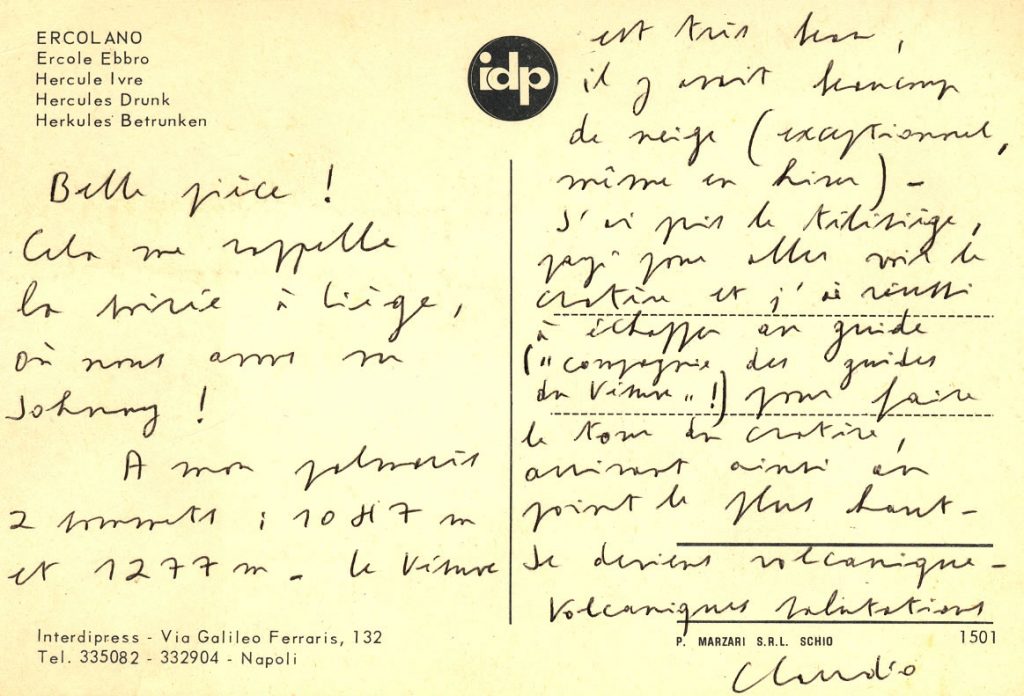 ERCOLANO
Ercole Ebbro
Hercule Ivre
Hercules Drunk
Herkules Betrunken
idp
Belle pièce !
Cela me rappelle
la soirée à Liège,
où nous avons vu
Johnny !
A mon palmarès
2 sommets : 1087 m
et 1277 m - Le Vésuve
est très beau,
il y avait beaucoup
de neige (exceptionnel,
même en hiver) -
J'ai pris le télésiège,
payé pour aller voir le
cratère et j'ai réussi
à échapper au guide
("compagnie des guides
du Vésuve" !) pour faire
le tour du cratère,
arrivant ainsi au
point le plus haut -
Je deviens volcanique -
Volcaniques salutations
Claudio
Interdipress - Via Galileo Ferraris, 132
Tel. 335082 - 332904 - Napoli
P. MARZARI S.R.L. SCHIO
1501